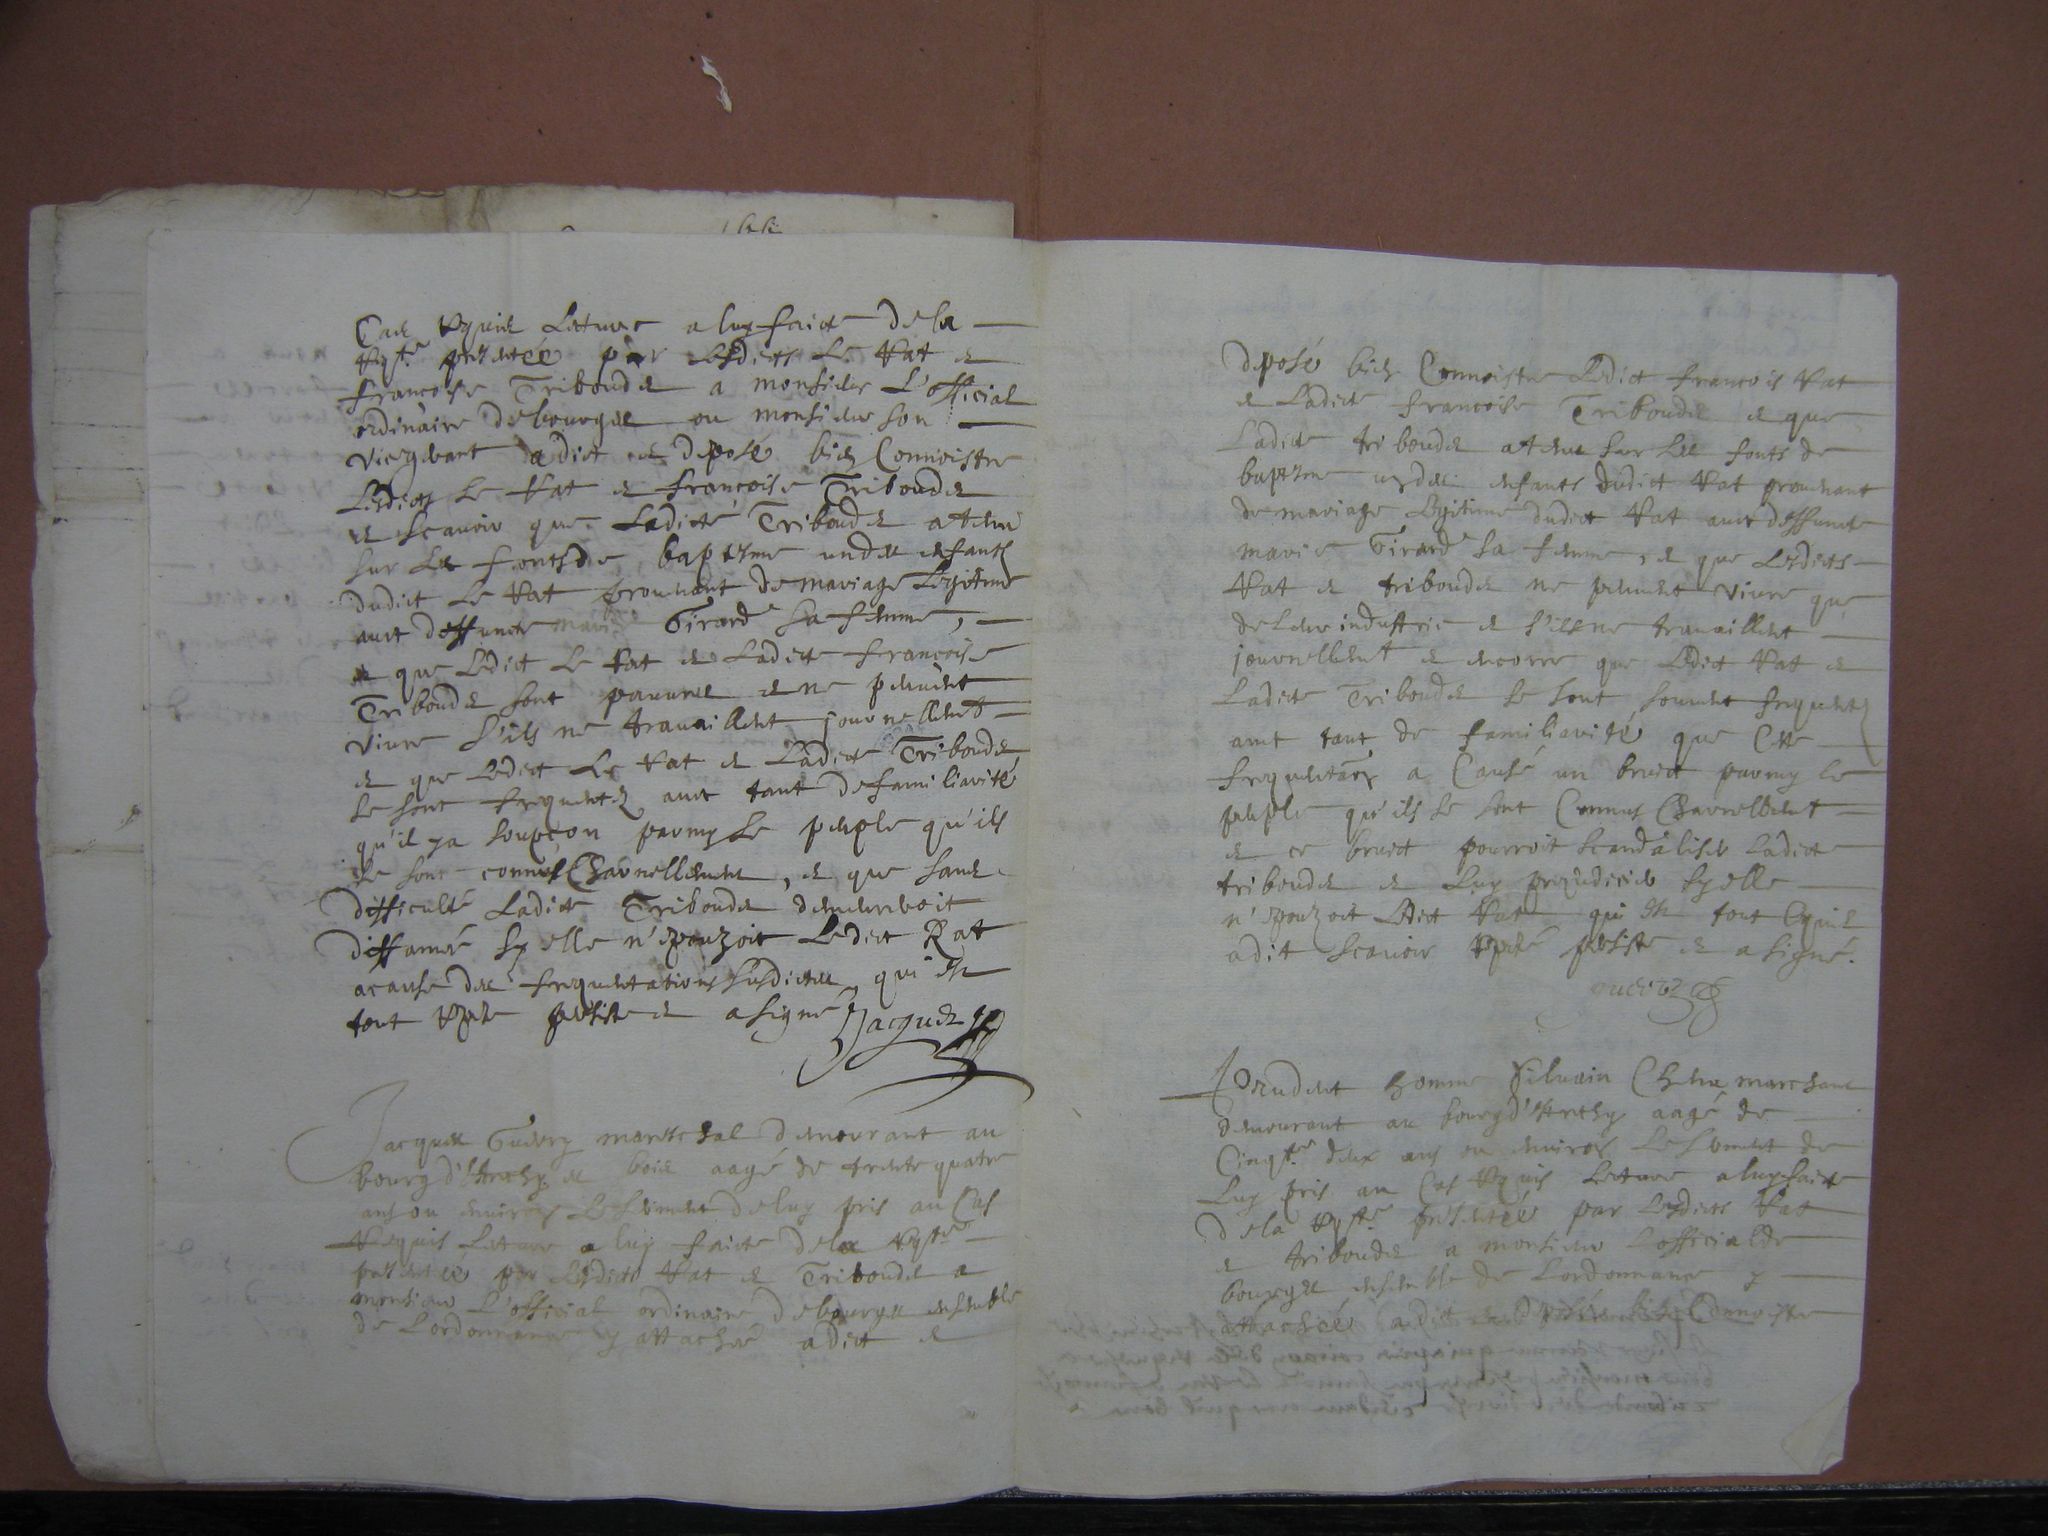 Cas Requis Lecture a luy faicte dela
Reqte presentée par lesdicts Le Rat et
francoise Triboudet a monsieur L'official
ordinaire debourges ou monsieur son
vicegerant adict et deposé bien Connoistre
Lesdicts Le Rat et françoise Triboudet
et scavoir que Ladicte Triboudet a tenu
sur Les fonts de baptesme un des enfants
dudict Le Rat provenant de mariage Legitime
avec deffuncte marie Girard sa femme,
et que Ledict Le Rat et Ladicte françoise
Triboudet sont pauvres et ne peuvent
vivre s'ils ne travaillent journellement
et que Ledict Le Rat et Ladicte Triboudet
se sont frequentez avec tant defamiliarité
qu'il ya soupçon parmy Le peuple qu'ils
se sont connus Charnellement, et que sans
difficulté Ladicte Triboudet demeureroit
diffamée sy elle n'epouzoit Ledict Rat
acause des frequentations susdictes, qui est
tout Repeté persiste et asigné Jacquet
Jacques Guerry mareschal demeurant au
bourg d' et bois aagé de trente quatre
ans ou environ Le serment deluy pris au Cas
Requis Lecture a luy faicte dela Reqte
presentée par Lesdicts Rat et Triboudet a
monsieur L'official ordinaire debourges ensemble
de Lordonnance y attachée adict et
deposé bien Connoistre Ledict francois Rat
et Ladicte francoise Triboudet et que
Ladicte triboudet a tenu sur Les fonts de
baptesme un des enfants dudict Rat provenant
de mariage Legitime dudict Rat avec deffuncte
marie Girard sa femme, et que Lesdicts
Rat et triboudet ne peuvent vivre que
de Leur industrie et s'ils ne travaillent
journellement et encorre que Ledict Rat et
Ladicte Triboudet se sont souvent frequentez
avec tant de familiarité que Cette
frequentaon a Causé un bruict parmy le
peuple qu'ils se sont Connus Charnellement
et ce bruict pourroit scandaliser Ladicte
triboudet et Luy prejudicier sy elle
n'epouzoit Ledict Rat qui est tout Ce quil
a dit scavoir Repeté persiste et a signé.
Prudent homme Silvain marchant
demeurant au bourg d' aagé de
Cinqte deux ans ou environ Le serment de
Luy pris au Cas Requis Lecture aluy faicte
De la Reqte presentée par Lesdicts Rat
et triboudet a monsieur Lofficial de
bourges ensemble de Lordonnance y
attachée adict et deposé bien Connoistre